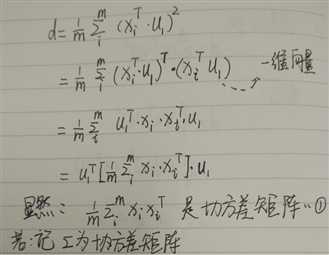 d = \frac{1}{m} \sum_{i}^{m} (x_i^T \cdot u_1)^2
= \frac{1}{m} \sum_{i}^{m} (x_i^T \cdot u_1)^T \cdot (x_i^T u_1) ⇢ 一维向量
= \frac{1}{m} \sum_{i}^{m} u_1^T \cdot x_i \cdot x_i^T \cdot u_1
= u_1^T [\frac{1}{m} \sum_{i}^{m} x_i \cdot x_i^T] \cdot u_1
显然: \frac{1}{m} \sum_{i}^{m} x_i x_i^T 是协方差矩阵..①
若:记 Σ为协方差矩阵